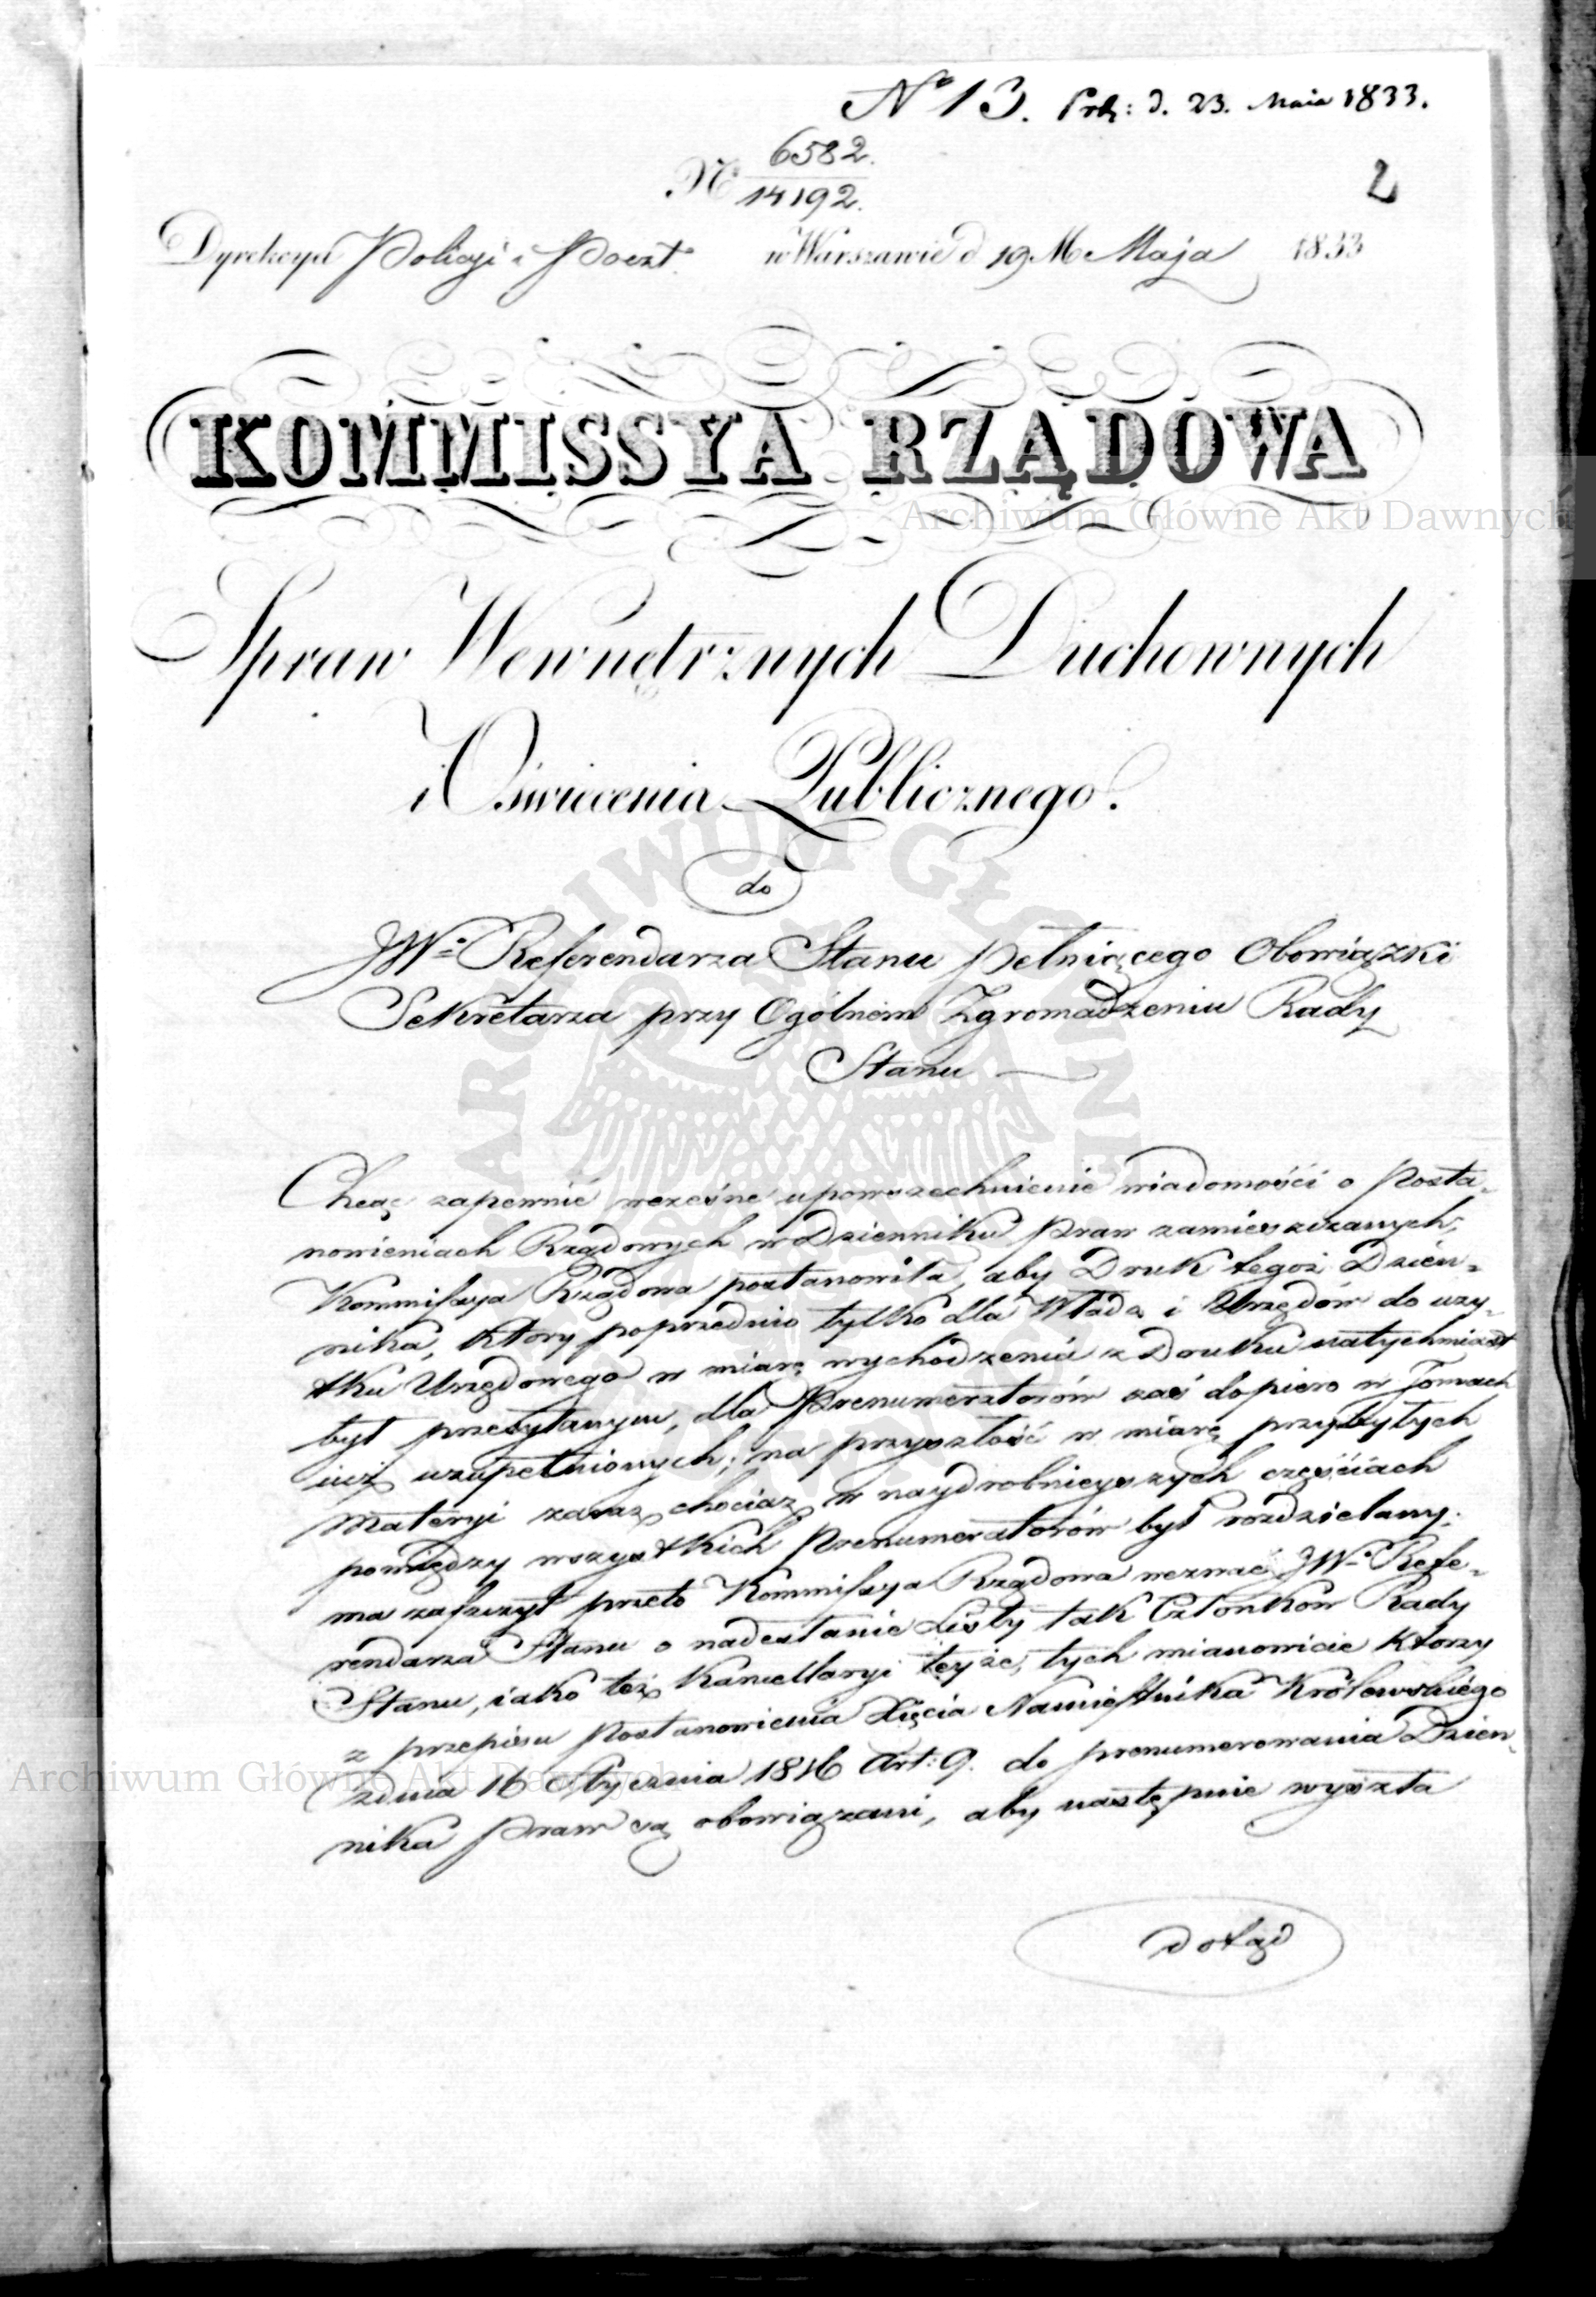 No 13. Prb: d. 23. Maia 1833.
No 6582.
14192.
2
Dyrekcya Policyi i Poczt. w Warszawie d 19 M Maja 1833
KOMMISSYA RZĄDOWA
Archiwum Główne Akt Dawnych
Spraw Wewnętrznych Duchownych
i Oświecenia Publicznego.
do
JWo Referendarza Stanu pełniącego Obowiązki
Sekretarza przy Ogólnem Zgromadzeniu Rady
Stanu
Chcąc zapewnić wczesne upowszechnienie wiadomości o Posta-
nowieniach Rządowych w Dzienniku Praw zamieszczanych,
Kommissya Rządowa postanowiła, aby Druk tegoż Dzien-
nika, który poprzednio tylko dla Władz i Urzędów do uży-
tku Urzędowego w miarę wychodzenia z Druku natychmiast
był przesyłanym, dla Prenumeratorów zaś dopiero w Tomach
iuż uzupełnionych; na przyszłość w miarę przybyłych
Materyi zaraz chociaż w naydrobnieyszych częściach
pomiędzy wszystkich Prenumeratorów był rozdzielany;
ma zaszczyt przeto Kommissya Rządowa wezwać JWo Refe-
rendarza Stanu o nadesłanie Listy tak Członków Rady
Stanu, iako też Kancellaryi teyże, tych mianowicie którzy
z przepisu Postanowienia Xięcia Namiestnika Królewskiego
z dnia 16 Stycznia 1816 Art: 9. do prenumerowania Dzien-
Archiwum Główne Akt Dawnych
nika Praw są obowiązani, aby następnie wyszła
dotąd